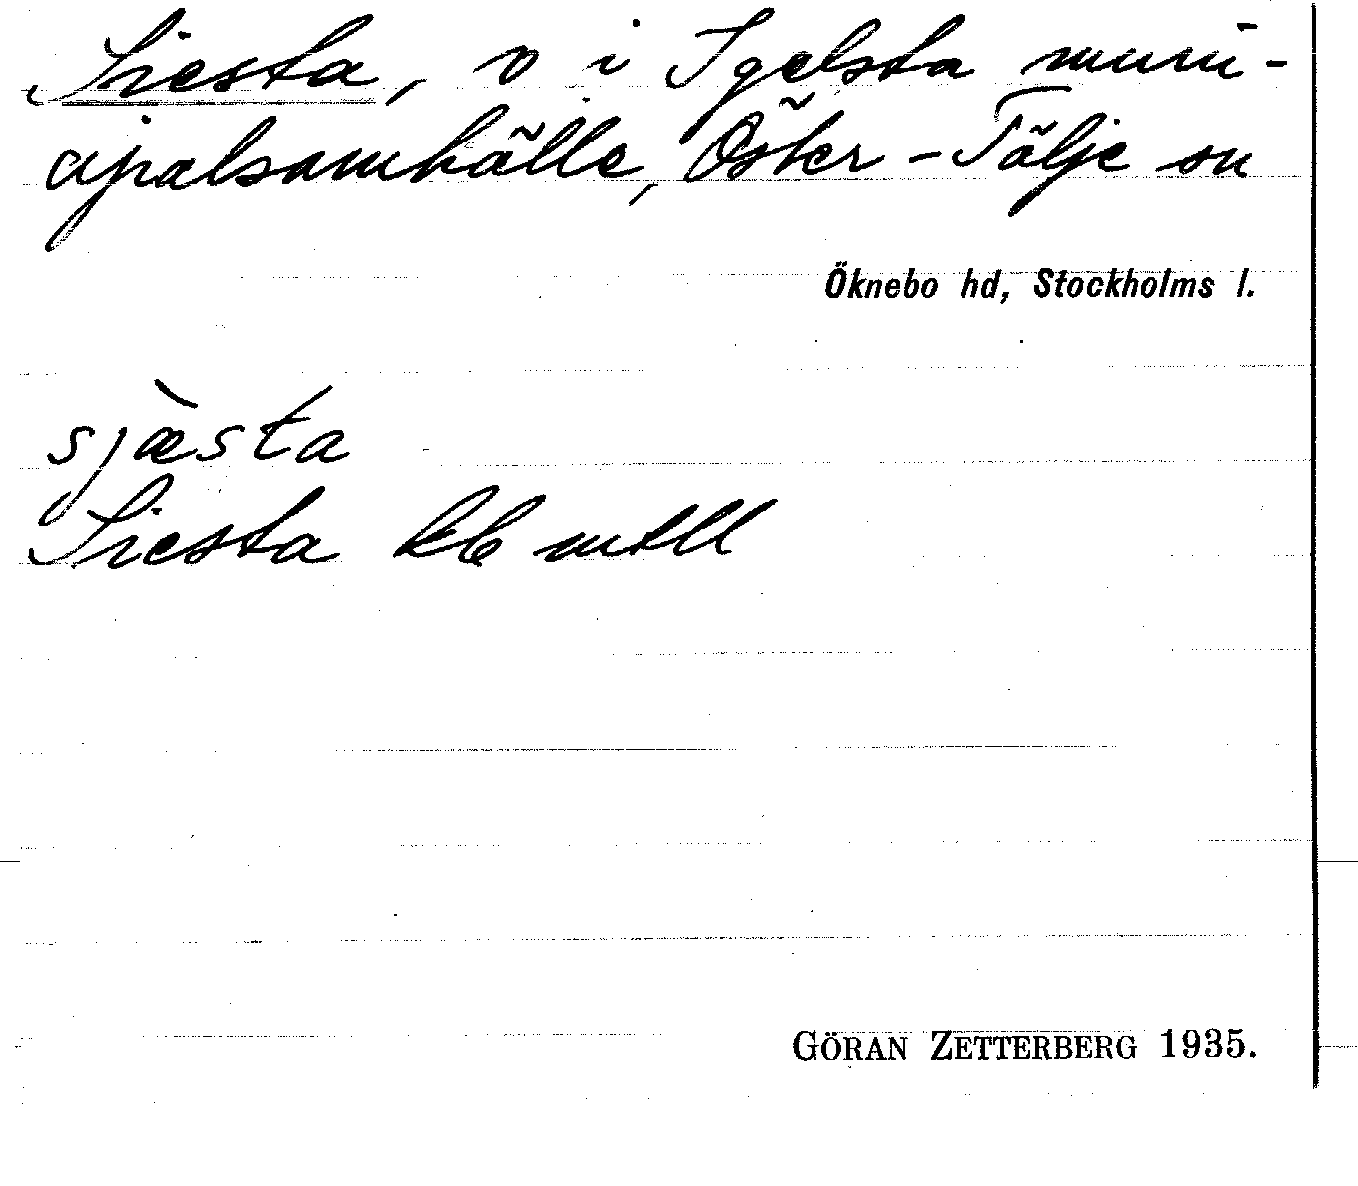 Siesta, v i Igelsta muni-
cipalsamhälle, Öster-Tälje sn
Öknebo hd, Stockholms l.
sjæ̀sta
Siesta kb mtll
GÖRAN ZETTERBERG 1935.